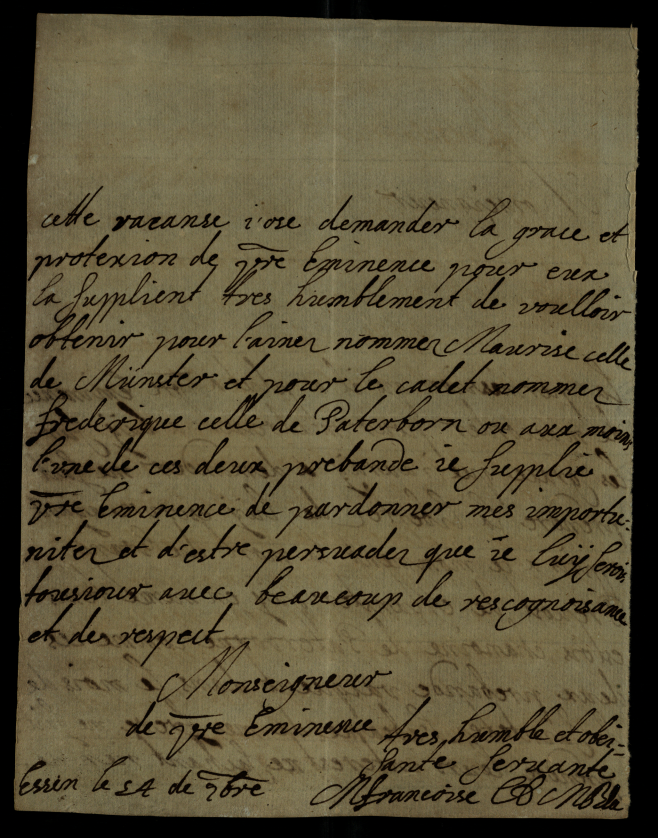 cette vacanse i'ose demander la grace et
protexion de vre Eminence pour eux
la supplient tres humblement de voulloir
obtenir pour l'ainez nommez Maurise celle
de Münster et pour le cadet nommez
frederique celle de Paterborn ou aux moins
l'une de ces deux prebande ie supplie
vre Eminence de pardonner mes importu-
nitez et d'estre persuadez que ie luÿ serois
tousiour avec beaucoup de rescognoisance
et de respect
Monseigneur
de vre Eminence
tres humble et obei-
sante servante
Essen le 24 de 7bre
Mfrancoise